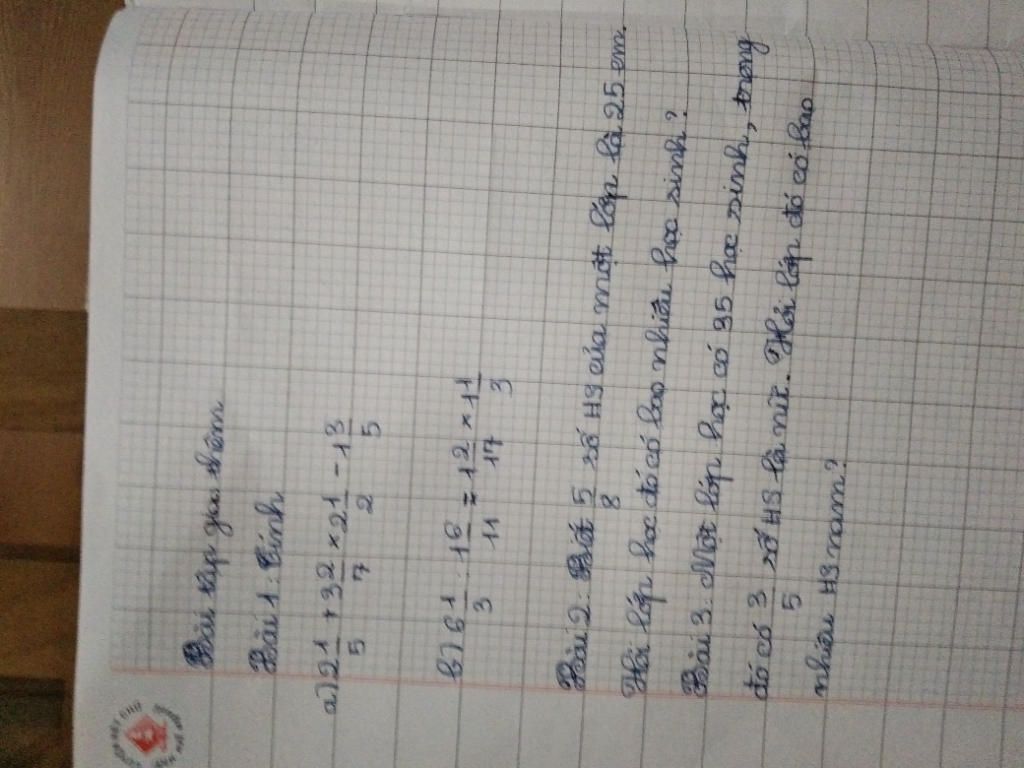 Bài tập giao thêm
Bài 1: Tính
a) 2 1/5 + 3 2/7 × 2 1/2 - 1 3/5
b) 6 1/3 : 1 6/11 = 1 2/17 × 1 1/3
Bài 2: Biết 5/8 số HS của một lớp là 25 em.
Hỏi lớp học đó có bao nhiêu học sinh?
Bài 3: Một lớp học có 35 học sinh, trong
đó có 3/5 số HS là nữ. Hỏi lớp đó có bao
nhiêu HS nam?